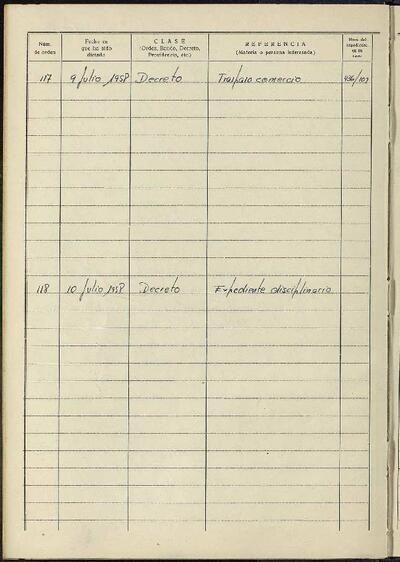 Núm. de orden
Fecha en que ha sido dictado
CLASE
(Orden, Bando, Decreto, Providencia, etc.)
REFERENCIA
(Materia o persona interesada)
Núm. del expediente
117 9 Julio 1958 Decreto Traspaso comercio
118 10 Julio 1958 Decreto Expediente disciplinario